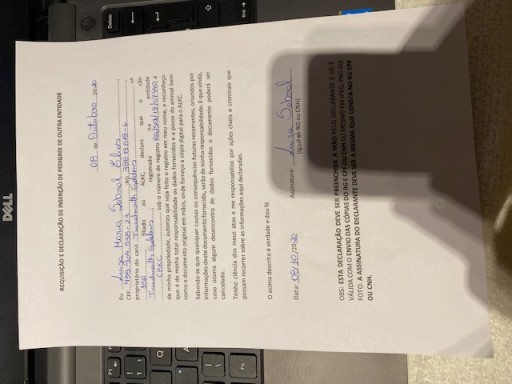 DELL
REQUISIÇÃO E DECLARAÇÃO DE INSERÇÃO DE PEDIGREE DE OUTRA ENTIDADE
08 de Outubro 2020
Eu
CPF RG
proprietário do cão
ao AUKC, declaro que o cão
registrado na entidade
sob o número de registro e
de minha propriedade, autorizo que seja feito o registro em meu nome, e reconheço
que é de minha total responsabilidade os dados fornecidos e a posse do animal bem
como o documento original em mãos, onde forneço a cópia digital para o AUKC.
Sabendo-se que quaisquer causas ou consequências futuras recorrentes, oriundas por
informações deste documento fornecido, serão de minha responsabilidade. E que ainda,
caso ocorra algum desencontro de dados fornecidos o documento poderá ser
cancelado.
Tenho ciência dos meus atos e me responsabilizo por ações cíveis e criminais que
possam recorrer sobre as informações aqui declaradas.
O acima descrito é verdade e dou fé
Data: 08/10/2020 Assinatura:
(igual ao RG ou CNH)
OBS: ESTA DECLARAÇÃO DEVE SER PREENCHIDA A MÃO PELO DECLARANTE E SÓ É
VÁLIDA COM O ENVIO DAS CÓPIAS DO RG E CPF OU CNH DO MESMO EM JPEG, PNG OU
FOTO. A ASSINATURA DO DECLARANTE DEVE SER A MESMA QUE CONSTA NO RG CPF
OU CNH.